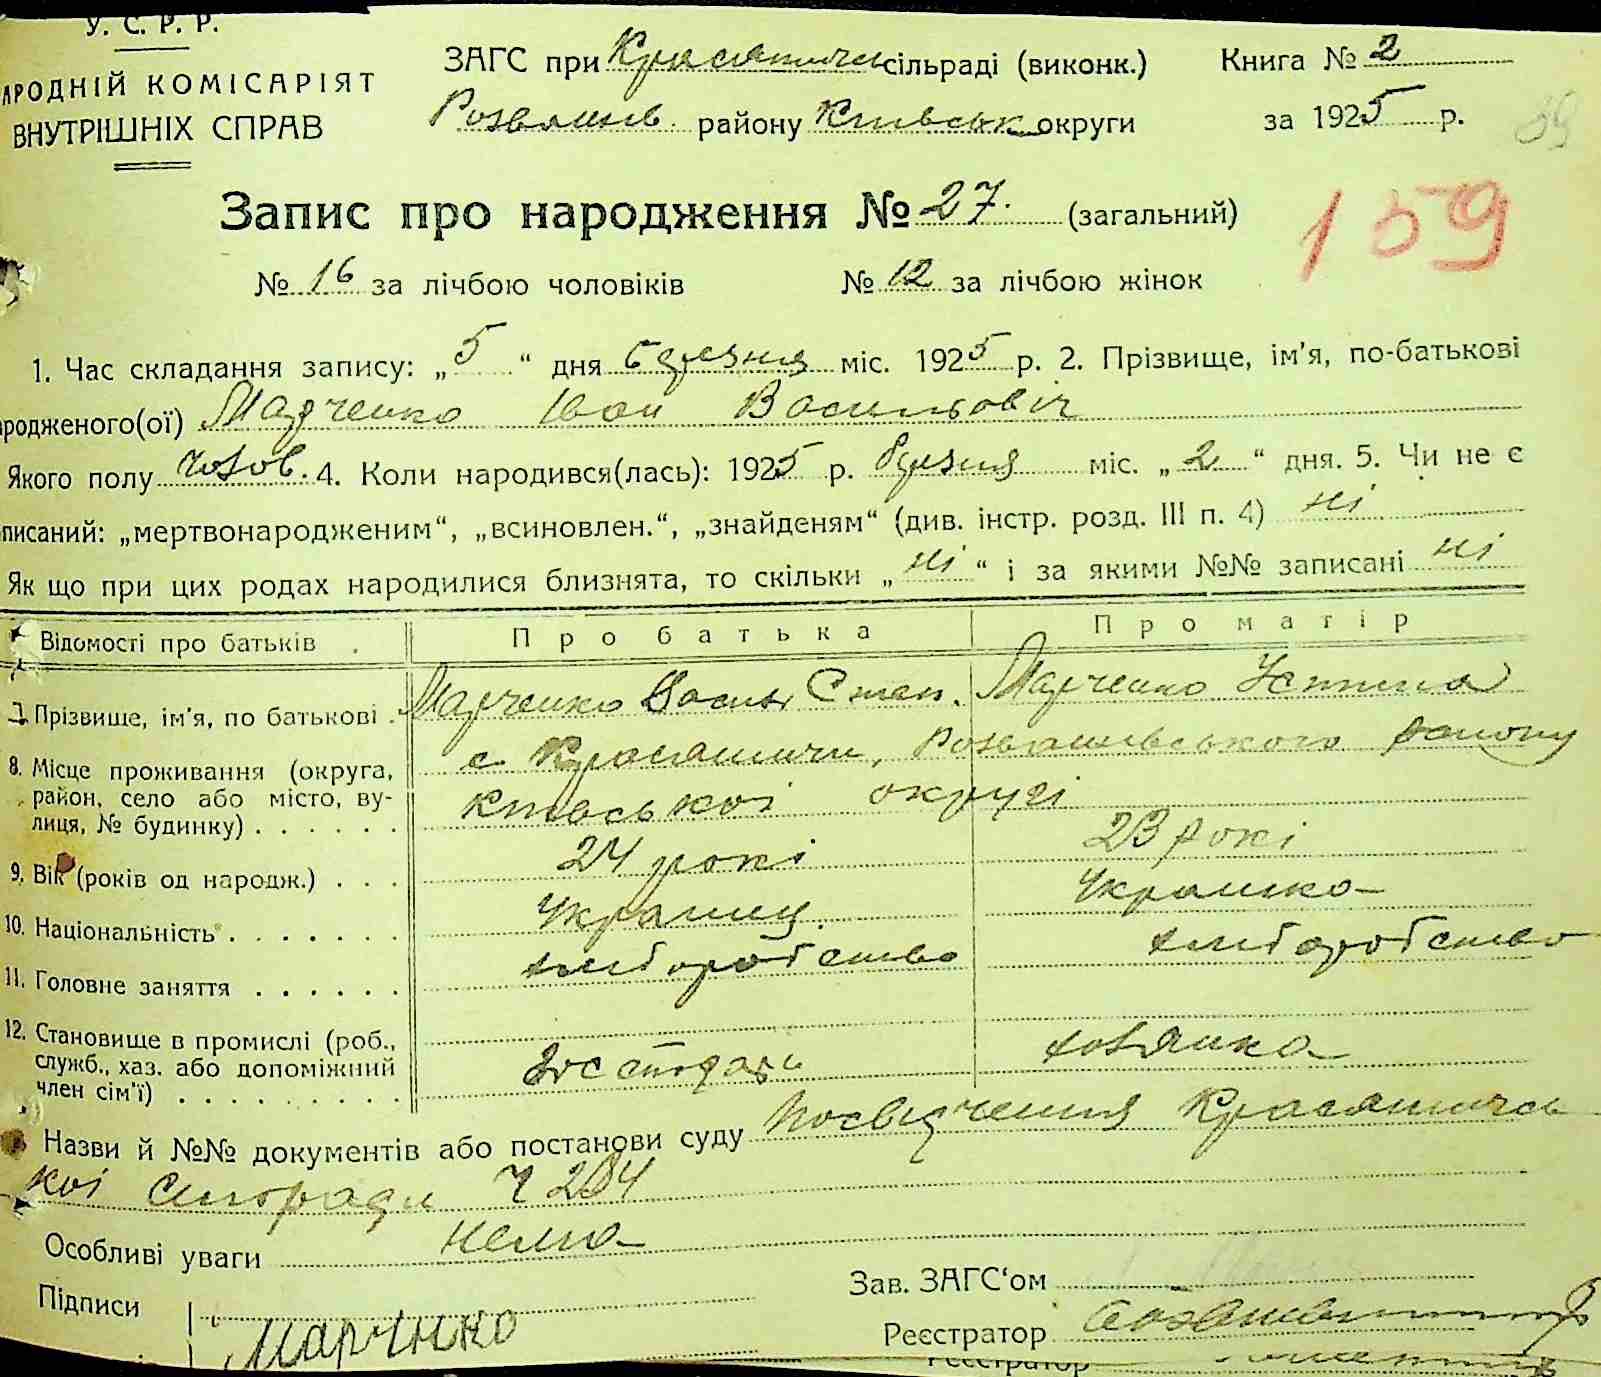 У. С. Р. Р.
АРОДНІЙ КОМІСАРІЯТ
ВНУТРІШНІХ СПРАВ
ЗАГС при Красятичськ сільраді (виконк.) Книга № 2
Розважів. району Київськ округи за 1925 р.
39
Запис про народження № 27. (загальний)
159
№ 16 за лічбою чоловіків № 12 за лічбою жінок
1. Час складання запису: „5“ дня березня міс. 1925 р. 2. Прізвище, ім'я, по-батькові
родженого(ої) Марченко Іван Васильовіч
Якого полу чолов. 4. Коли народився(лась): 1925 р. березня міс. „2“ дня. 5. Чи не є
писаний: „мертвонародженим“, „всиновлен.“, „знайденям“ (див. інстр. розд. III п. 4) ні
Як що при цих родах народилися близнята, то скільки „ні“ і за якими №№ записані ні
Відомості про батьків . Про батька Про матір
7. Прізвище, ім'я, по батькові . Марченко Василь Степ. Марченко Устина
8. Місце проживання (округа, район, село або місто, вулиця, № будинку) . . . . . . с. Красятичи, Розважівського району
Київської округі
9. Вік (років од народж.) . . . 24 рокі 23 рокі
10. Національність . . . . . . . Украинц. Украинка
11. Головне заняття . . . . . . хліборобство хліборобство
12. Становище в промислі (роб., служб., хаз. або допоміжний член сім'ї) . . . . . . . . . . господарь хозяйка
Назви й №№ документів або постанови суду Посвідчення Красятичсь
кої сільради Ч 204
Особливі уваги нема
Підписи Марченко
Зав. ЗАГС'ом
Реєстратор
Реєстратор